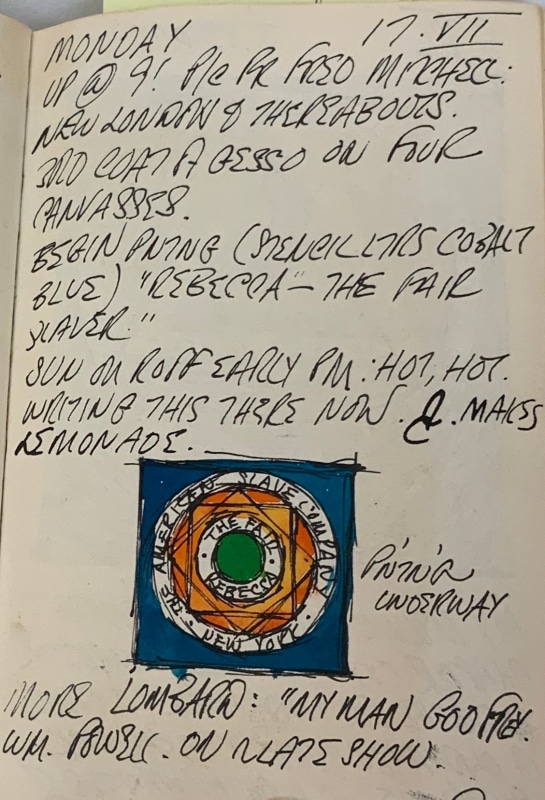 MONDAY 17.VII
UP @ 9! P/C FR FRED MITCHELL:
NEW LONDON & THEREABOUTS.
3RD COAT A GESSO ON FOUR
CANVASSES.
BEGIN PNTNG (STENCIL LTRS COBALT
BLUE) "REBECCA" — THE FAIR
SLAVER."
SUN ON ROOF EARLY PM: HOT, HOT.
WRITING THIS THERE NOW. MAKES
LEMONADE.
THE AMERICAN SLAVE COMPANY
· NEW YORK ·
· THE FAIR ·
REBECCA
PNTNG
UNDERWAY
MORE LOMBARD: "MY MAN GODFREY.
WM. POWELL. ON LATE SHOW.